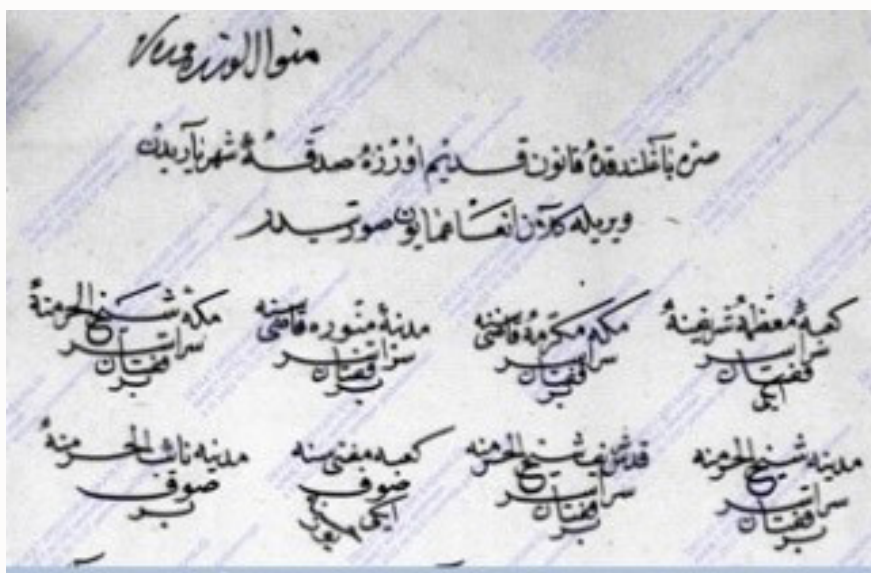 منوال اوزره
صره باغلندقده قانون قديم اوزره صدقهٔ شهرياريدن
ويريله كلان انعام همايون صورتيدر
كعبهٔ معظمهٔ
سراسر
قفتان
ايكى
مكهٔ مكرمه قاضيسنه
سراسر
قفتان
بر
مدينهٔ منوره قاضيسنه
سراسر
قفتان
بر
مكه شيخ الحرمنه
سراسر
قفتان
بر
مدينه شيخ الحرمنه
سراسر
قفتان
بر
قدس شريف شيخ الحرمنه
سراسر
قفتان
بر
كعبه مفتيسنه
صوف
ايكى
مدينه نائب الحرمنه
صوف
بر